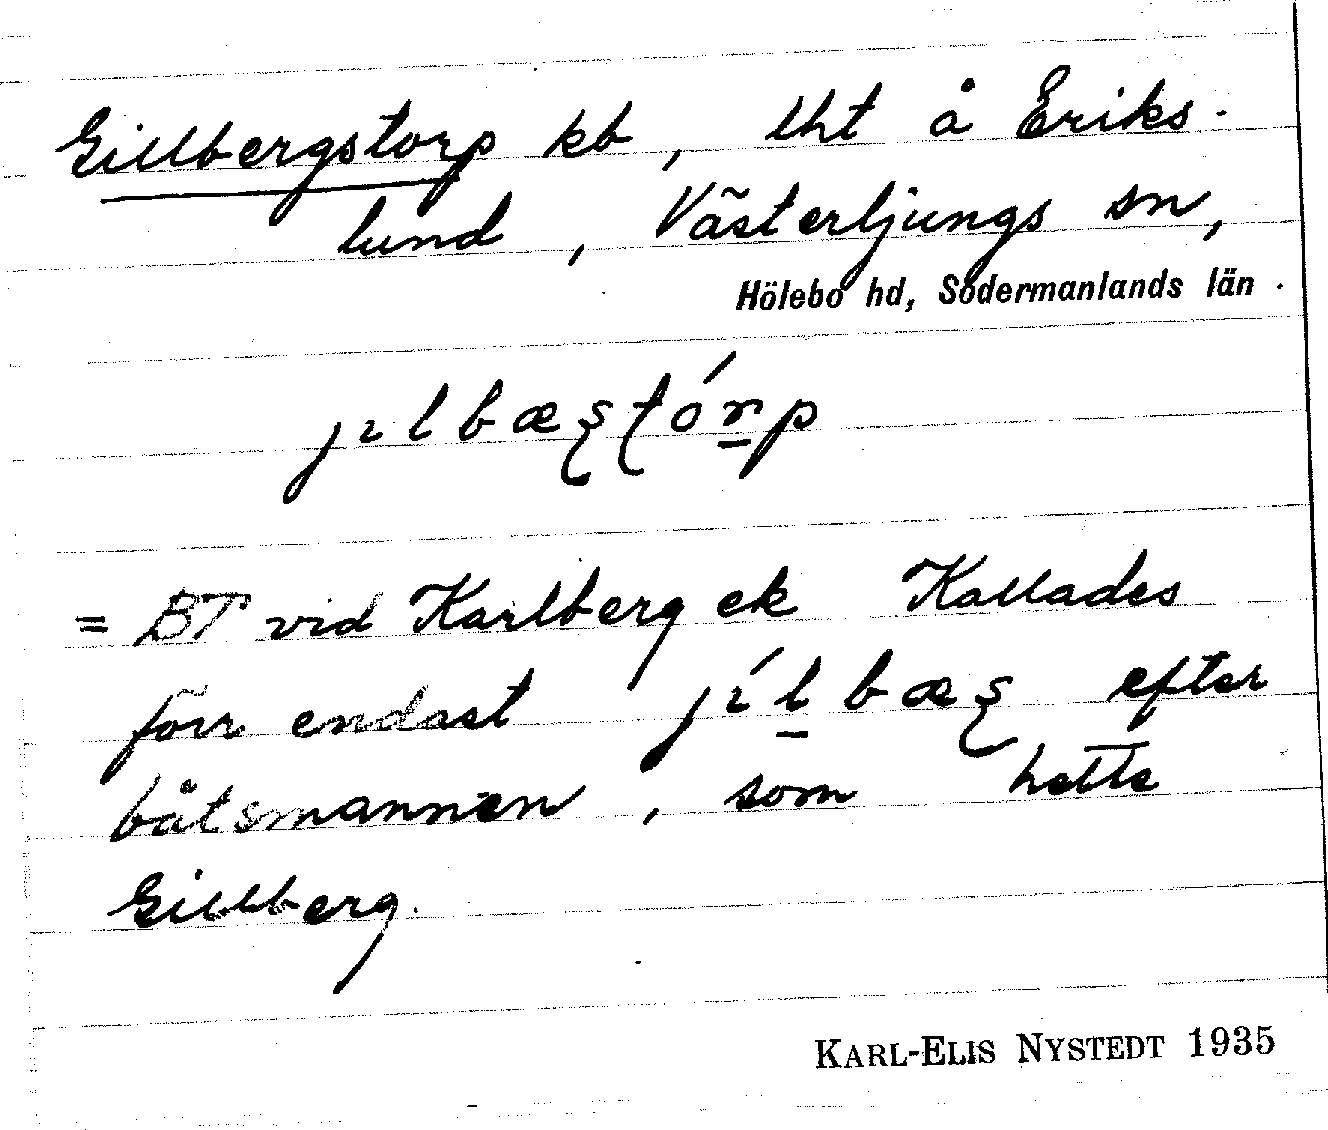 Gillbergstorp kb, lht å Eriks-
lund, Västerljungs sn,
Hölebo hd, Södermanlands län.
jılbæʂʈórp
= BT vid Karlberg ek Kallades
förr endast jílbæʂ efter
båtsmannen, som hette
Gillberg.
KARL-ELIS NYSTEDT 1935